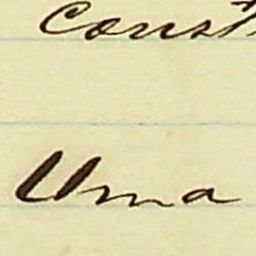 Const
Uma